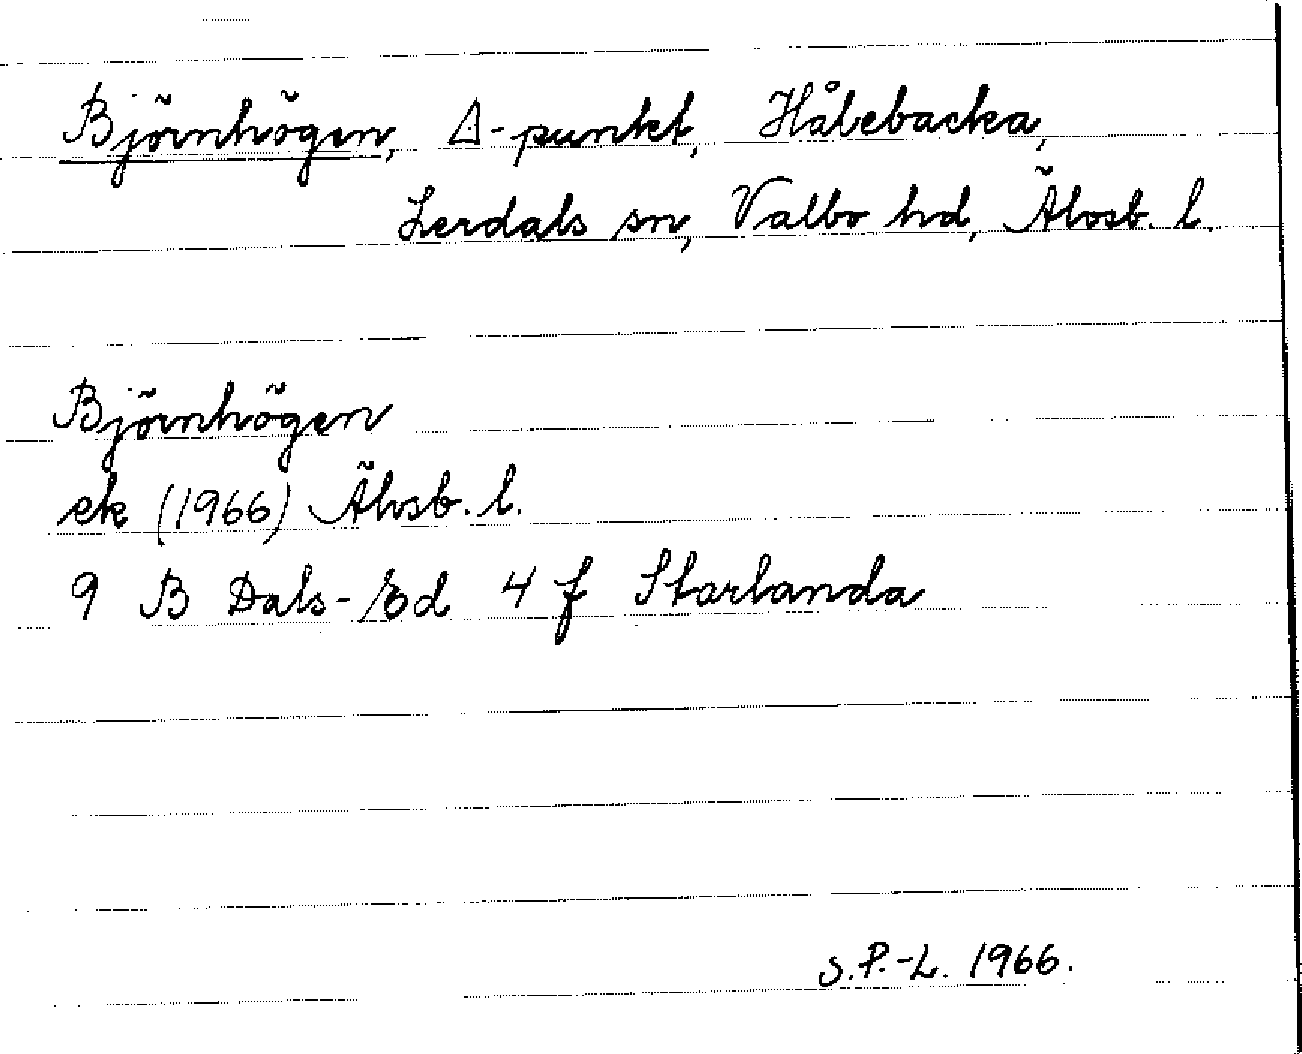 Björnhögen, Δ-punkt, Hålebacka,
Lerdals sn, Valbo hd, Älvsb. l.
Björnhögen
ek (1966) Älvsb. l.
9 B Dals-Ed 4 f Starlanda
S.P.-L. 1966.